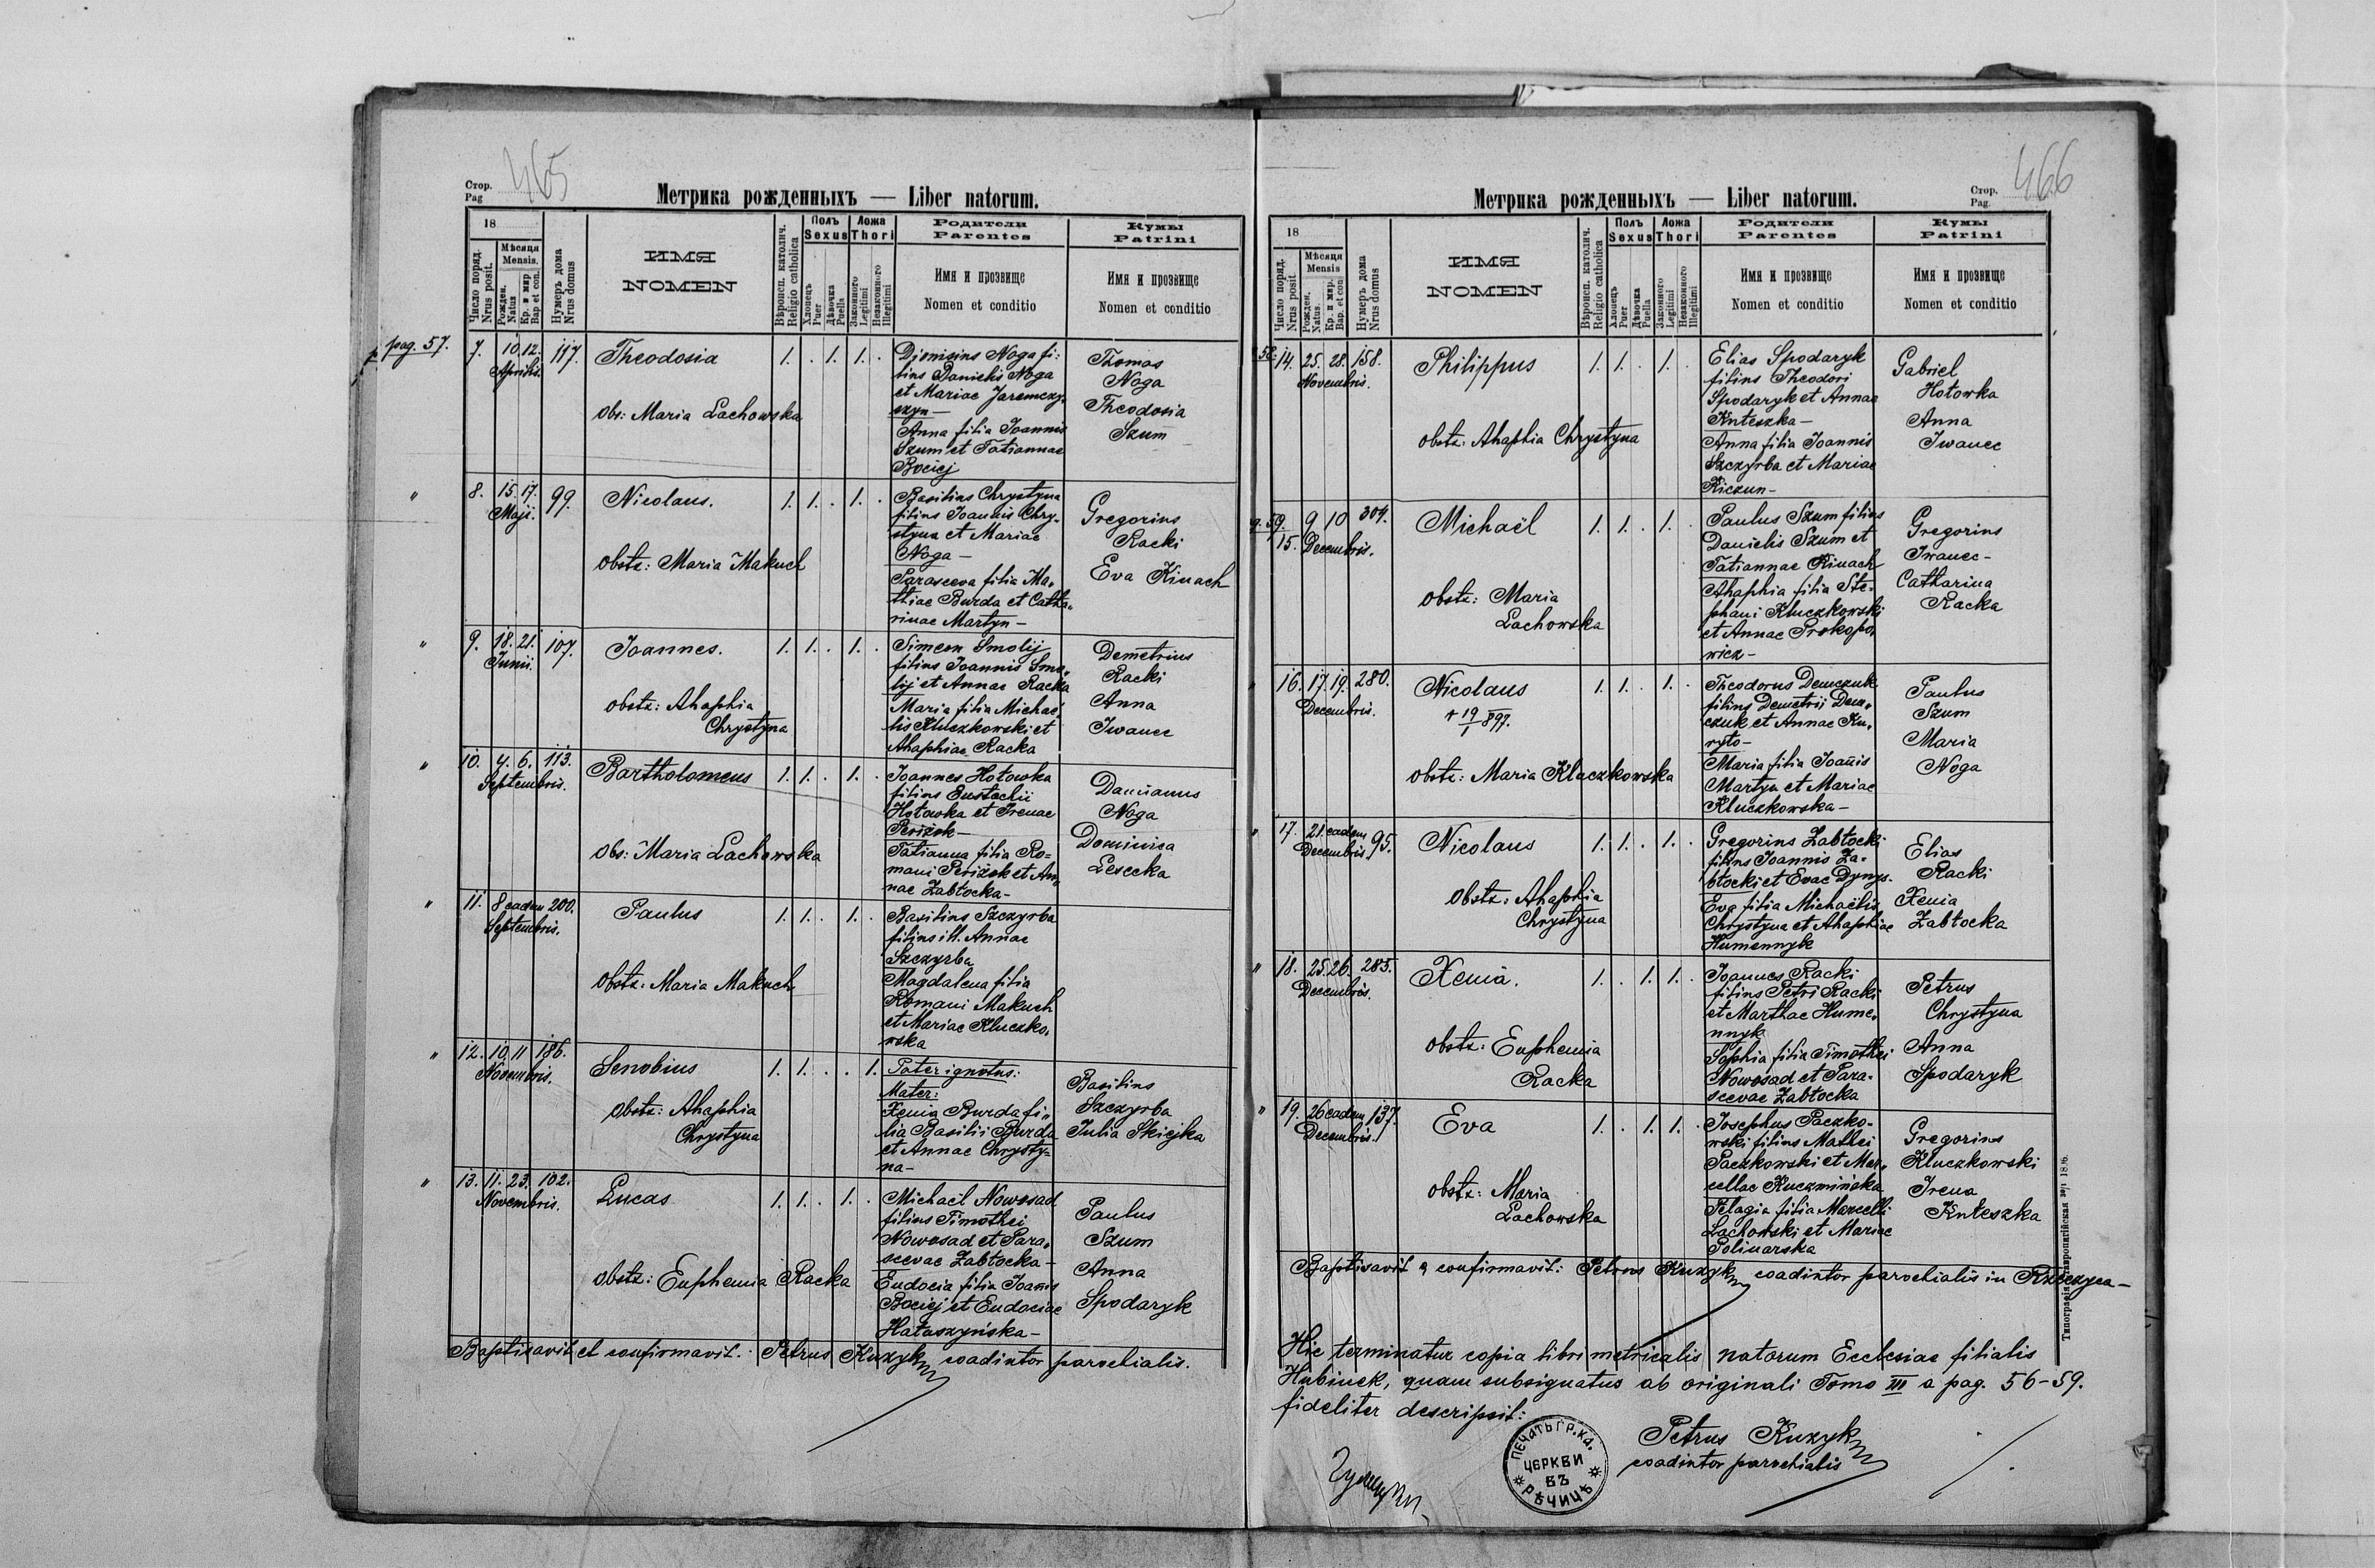 465
Стор.
Pag
Метрика рожденныхъ — Liber natorum.
18
Число поряд.
Nrus posit.
Мѣсяця
Mensis.
Рожден.
Natus
Кр. и мир
Bap et con.
Нумеръ дома
Nrus domus
ИМЯ
NOMEN
Вѣроисп. католич.
Religio catholica
Полъ
Sexus
Хлопець
Puer
Дѣвочка
Puella
Ложа
Thori
Законного
Legitimi
Незаконного
Illegitimi
Родители
Parentes
Имя и прозвище
Nomen et conditio
Кумы
Patrini
Имя и прозвище
Nomen et conditio
pag. 57.
7. 10. 12. 117. Theodosia 1. . 1. 1. .
Aprilis.
obs: Maria Lachowska
Dionisius Noga fi-
lius Danielis Noga
et Mariae Jaremczy-
szyn —
Anna filia Joannis
Szum et Tatiannae
Bociej
Thomas
Noga
Theodosia
Szum
" 8. 15. 17. 99. Nicolaus. 1. 1. . 1. .
Maji.
obstz: Maria Makuch
Basilius Chrystyna
filius Joannis Chry-
styna et Mariae
Noga —
Parasceva filia Ma-
thiae Burda et Catha-
rinae Martyn —
Gregorius
Racki
Eva Kinach
" 9. 18. 21. 107. Joannes. 1. 1. . 1. .
Junii.
obstz: Ahaphia
Chrystyna
Simeon Smolij
filius Joannis Smo-
lij et Annae Racka
Maria filia Michae-
lis Kluczkowski et
Ahaphiae Racka
Demetrius
Racki
Anna
Iwanec
" 10. 4. 6. 113. Bartholomeus 1. 1. . 1. .
Septembris.
obs: Maria Lachowska
Joannes Hołowka
filius Eustachii
Hołowka et Irenae
Periżok —
Tatianna filia Ro-
mani Periżok et An-
nae Zabłocka —
Damianus
Noga
Dominica
Lesecka
" 11. 8 eadem 200. Paulus 1. 1. . 1. .
Septembris.
obstz: Maria Makuch
Basilius Szczyrba
filius ill. Annae
Szczyrba
Magdalena filia
Romani Makuch
et Mariae Kluczko-
wska
" 12. 10. 11 186. Senobius 1. 1. . . 1.
Novembris.
obstz: Ahaphia
Chrystyna
Pater ignotus:
Mater:
Xenia Burda fi-
lia Basilii Burda
et Annae Chrysty-
na —
Basilius
Szczyrba
Julia Skiejka
" 13. 11. 23. 102. Lucas 1. 1. . 1. .
Novembris.
obstz: Euphemia Racka
Michael Nowosad
filius Timothei
Nowosad et Para-
scevae Zabłocka —
Eudocia filia Joañis
Bociej et Eudociae
Hałaszyńska —
Paulus
Szum
Anna
Spodaryk
Baptisavit et confirmavit: Petrus Kuzyk coadiutor parochialis.
466
Стор.
Pag.
Метрика рожденныхъ — Liber natorum.
18
Число поряд.
Nrus posit
Мѣсяця
Mensis
Рожден.
Natus.
Кр. и мир.
Bap. et con
Нумеръ дома
Nrus domus
ИМЯ
NOMEN
Вѣроисп. католич.
Religio catholica
Полъ
Sexus
Хлопець
Puer
Дѣвочка
Puella
Ложа
Thori
Законного
Legitimi
Незаконного
Illegitimi
Родители
Parentes
Имя и прозвище
Nomen et conditio
Кумы
Patrini
Имя и прозвище
Nomen et conditio
58. 14. 25. 28. 158. Philippus 1. 1. . 1. .
Novembris.
obstz: Ahaphia Chrystyna
Elias Spodaryk
filius Theodori
Spodaryk et Annae
Knteszka —
Anna filia Joannis
Szczyrba et Mariae
Kiczun —
Gabriel
Hołowka
Anna
Iwanec
59. 15. 9 10 304. Michaël 1. 1. . 1. .
Decembris.
obstz: Maria
Lachowska
Paulus Szum filius
Danielis Szum et
Tatiannae Kinach
Ahaphia filia Ste-
phani Kluczkowski
et Annae Prokopo-
wicz —
Gregorius
Iwanec —
Catharina
Racka
" 16. 17. 19. 280. Nicolaus 1. 1. . 1. .
Decembris.
+ 19/I 897.
obstz: Maria Kluczkowska
Theodorus Demczuk
filius Demetrii Dem-
czuk et Annae Ku-
ryło —
Maria filia Joañis
Martyn et Mariae
Kluczkowska —
Paulus
Szum
Maria
Noga
" 17. 21. eadem 95. Nicolaus 1. 1. . 1. .
Decembris.
obstz: Ahaphia
Chrystyna
Gregorius Zabłocki
filius Joannis Za-
błocki et Evae Dynys.
Eva filia Michaëlis
Chrystyna et Ahaphiae
Humennyk
Elias
Racki
Xenia
Zabłocka
" 18. 25. 26. 283. Xenia. 1. . 1. 1. .
Decembris.
obstz: Euphemia
Racka
Joannes Racki
filius Petri Racki
et Marthae Hume-
nnyk
Sophia filia Timothei
Nowosad et Para-
scevae Zabłocka
Petrus
Chrystyna
Anna
Spodaryk
" 19. 26 eadem 137. Eva 1. . 1. 1. .
Decembris.
obstz: Maria
Lachowska
Josephus Paczko-
wski filius Mathei
Paczkowski et Mar-
cellae Kuczmińska
Pelagia filia Marcelli
Lachowski et Mariae
Polinarska
Gregorius
Kluczkowski
Irena
Knteszka
Baptisavit & confirmavit: Petrus Kuzyk coadiutor parochialis in Rzeczyca —
Hic terminatur copia libri metricalis natorum Ecclesiae filialis
Hubinek, quam subsignatus ab originali Tomo III a pag. 56-59.
fideliter descripsit:
Petrus Kuzyk
coadiutor parochialis
ПЕЧАТЬ ГР. КА.
ЦЕРКВИ
ВЪ
РѢЧИЦѢ